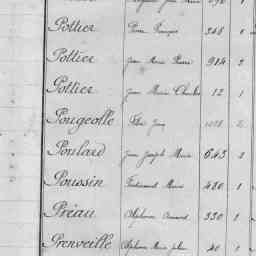 Pottier Pierre François 348 1
Pottier Jean Marie Pierre 914 2
Pottier Jean Marie Charles 12 1
Pougeolle Félix 1028 2
Poulard Jean Joseph Marie 643 2
Poussin Ferdinand Marie 480 1
Préau Alphonse Armand 330 1
Prenveille Alphonse Marie Julien 40 1